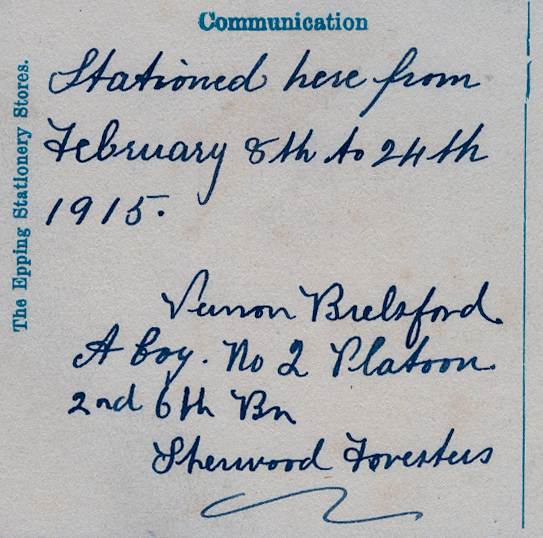 Communication
The Epping Stationery Stores.
Stationed here from
February 8th to 24th
1915.
Vernon Brelsford
A Coy. No 2 Platoon
2nd 6th Bn
Sherwood Foresters